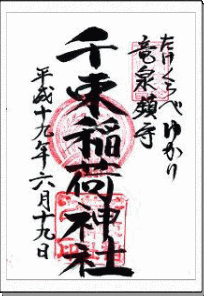 たけくらべゆかり
竜泉鎮守
千束稲荷神社
平成十九年六月十九日